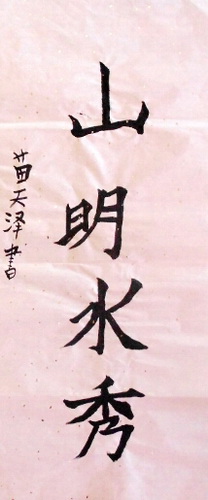 山明水秀
苗天泽書